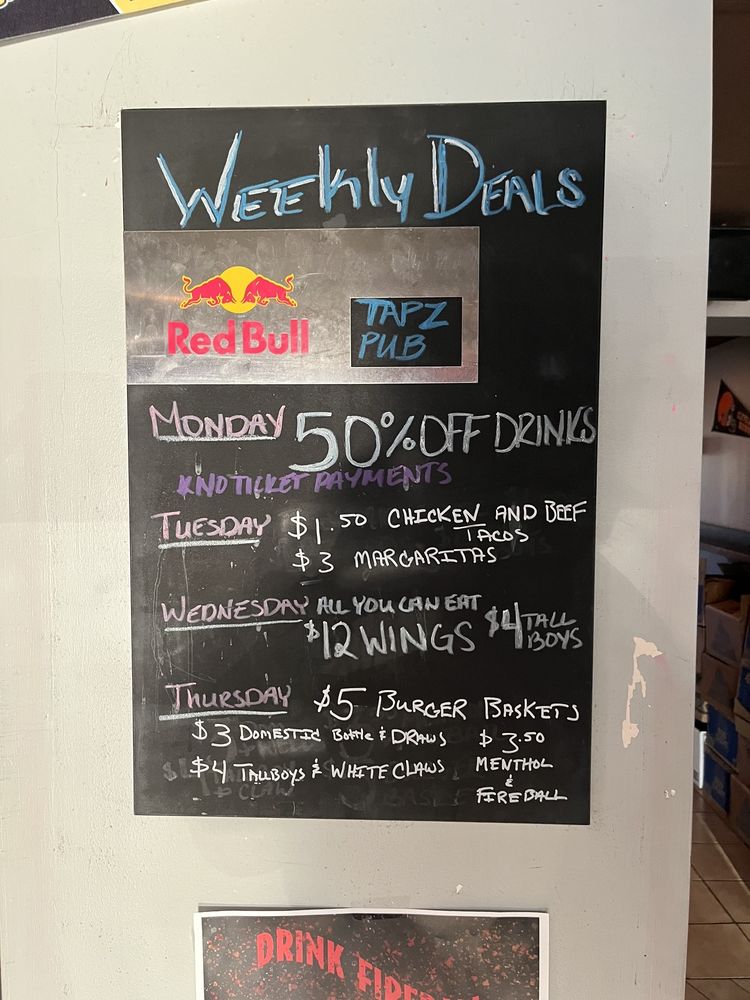 WEEKly DEALS
Red Bull
TAPZ
PUB
MONDAY 50% OFF DRINKS
*NO TICKET PAYMENTS
TUESDAY $1.50 CHICKEN AND BEEF
TACOS
$3 MARGARITAS
WEDNESDAY ALL YOU CAN EAT
$12 WINGS $4 TALL
BOYS
THURSDAY $5 BURGER BASKETS
$3 DOMESTIC BOTTLE & DRAWS $3.50
$4 TALLBOYS & WHITE CLAWS MENTHOL
&
FIREBALL
DRINK